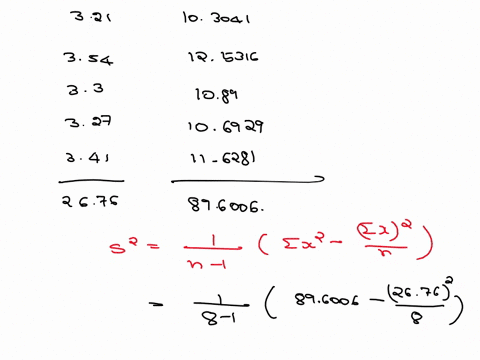 3.21 10.3041
3.54 12.5316
3.3 10.89
3.27 10.6929
3.41 11.6281
26.76 89.6006.
s² = 1/(n-1) ( Σx² - (Σx)²/n )
= 1/(8-1) ( 89.6006 - (26.76)²/8 )